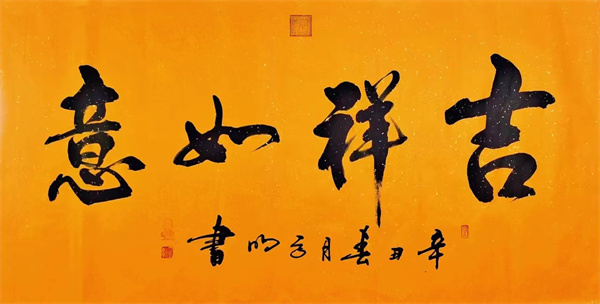 吉祥如意
辛丑春月子明書